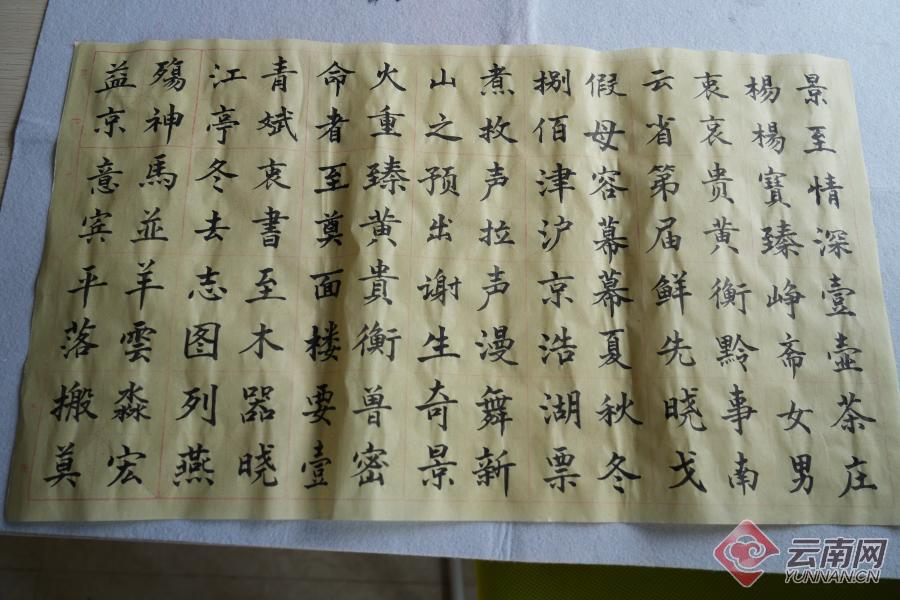 景至情深壹壷茶庄
楊楊寳臻峥斋女男
衷哀贵黄衡黔事南
云省第届鲜先晓戈
假母容幕幕夏秋冬
捌佰津沪京浩湖票
煮救声拉声漫舞新
山之预出谢生奇景
火重臻黄貴衡兽密
命者至奠面楼要壹
青斌衷書至木器晓
江亭冬去志图列燕
殤神馬並羊雲淼宏
益京意宾平落搬莫
云南网
YUNNAN.CN